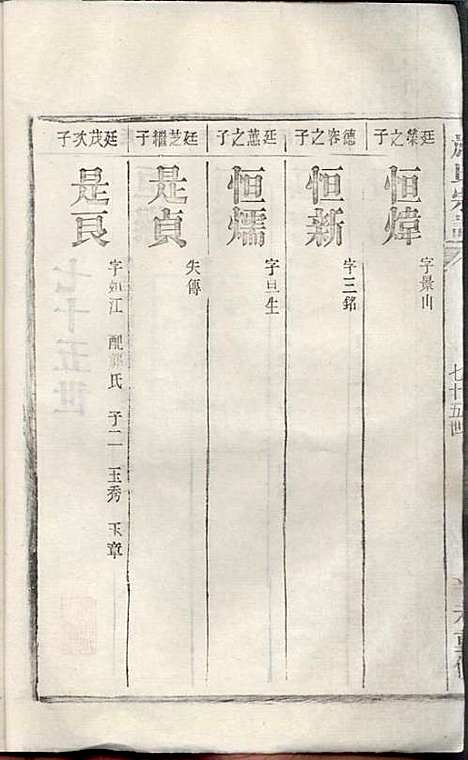 廷榮之子
恒煒
字景山
德容之子
恒新
字三銘
廷蕙之子
恒燸
字旦生
廷芝繼子
是貞
失傳
廷茂次子
是艮
江 配 氏 子二 玉秀 玉章
七十五世